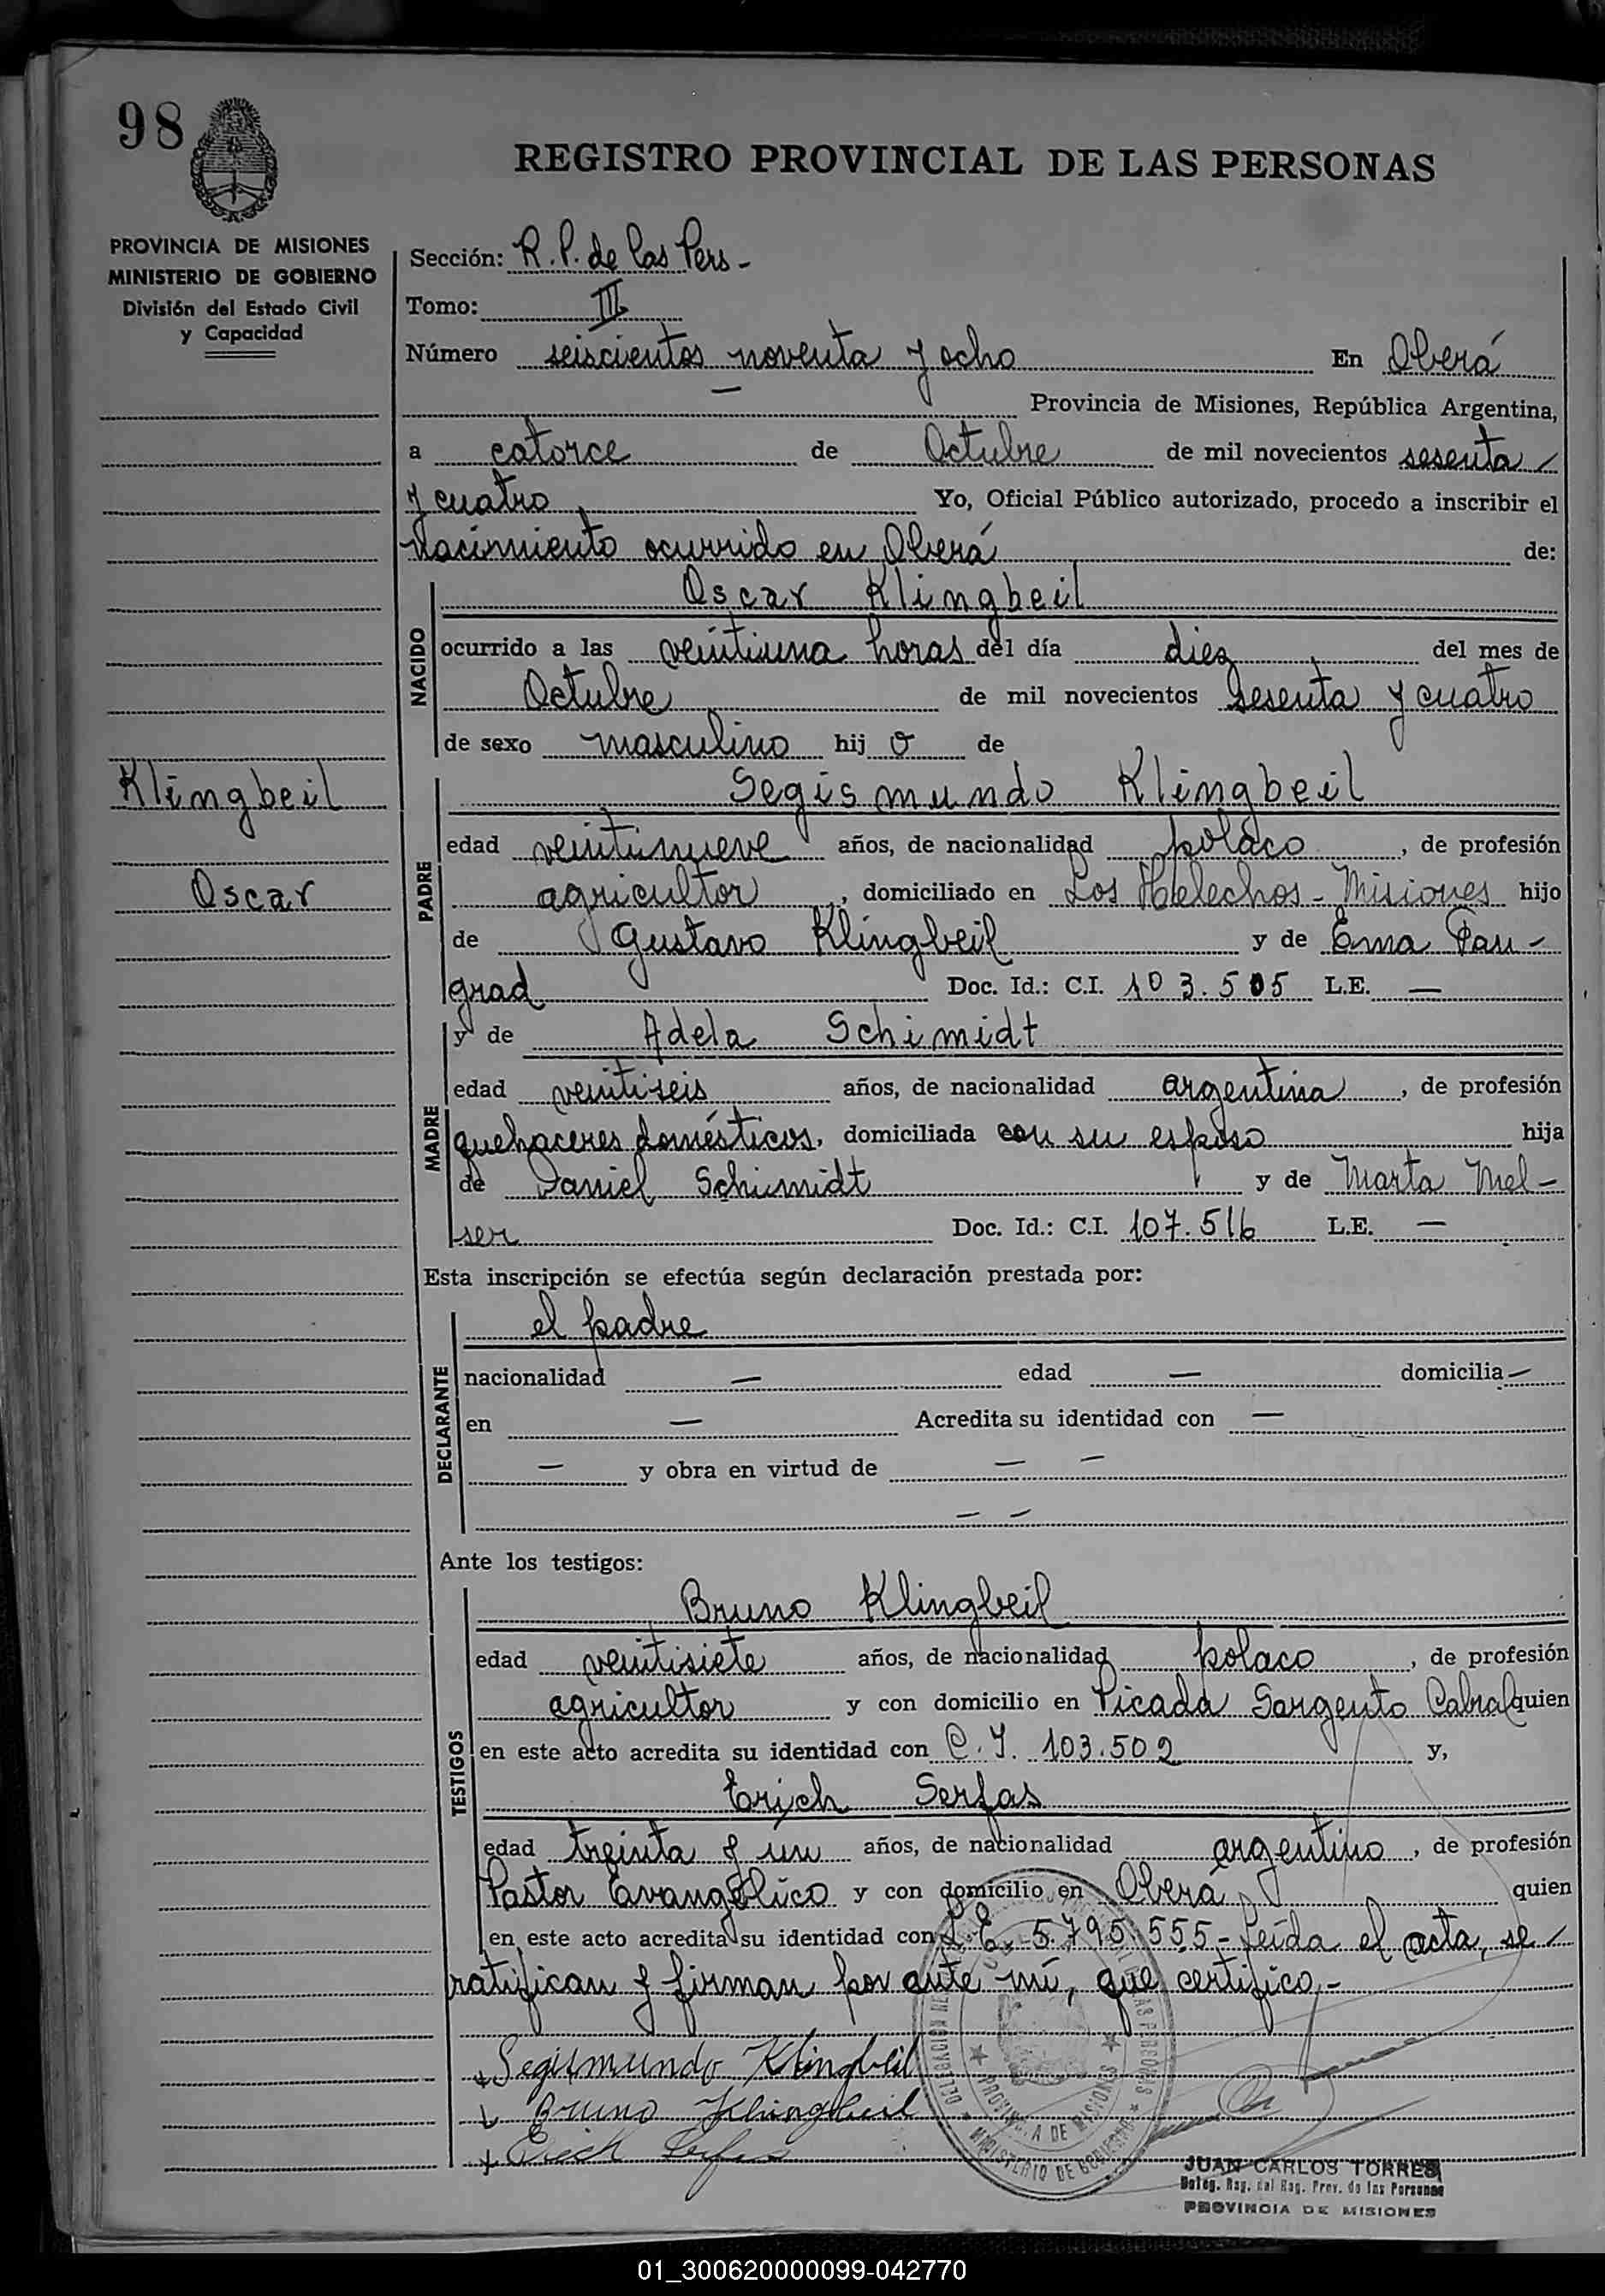 98
REGISTRO PROVINCIAL DE LAS PERSONAS
PROVINCIA DE MISIONES
MINISTERIO DE GOBIERNO
División del Estado Civil
y Capacidad
Sección: R.P. de las Pers-
Tomo: III
Número seiscientos noventa y ocho En Oberá
— Provincia de Misiones, República Argentina,
a catorce de Octubre de mil novecientos sesenta /
y cuatro Yo, Oficial Público autorizado, procedo a inscribir el
nacimiento ocurrido en Oberá de:
NACIDO
Oscar Klingbeil
ocurrido a las veintiuna horas del día diez del mes de
Octubre de mil novecientos sesenta y cuatro
de sexo masculino hij o de
Klingbeil
Oscar
PADRE
Segismundo Klingbeil
edad veintinueve años, de nacionalidad polaco, de profesión
agricultor, domiciliado en Los Helechos - Misiones hijo
de Gustavo Klingbeil y de Ema Pau-
grad Doc. Id.: C.I. 103.505 L.E. —
MADRE
y de Adela Schimidt
edad veintiseis años, de nacionalidad argentina, de profesión
quehaceres domésticos, domiciliada con su esposo hija
de Daniel Schimidt y de Marta Mel-
ser Doc. Id.: C.I. 107.516 L.E. —
Esta inscripción se efectúa según declaración prestada por:
DECLARANTE
el padre
nacionalidad — edad — domicilia —
en — Acredita su identidad con —
— y obra en virtud de — —
— —
Ante los testigos:
TESTIGOS
Bruno Klingbeil
edad veintisiete años, de nacionalidad polaco, de profesión
agricultor y con domicilio en Picada Sargento Cabral quien
en este acto acredita su identidad con C.I. 103.502 y,
Erich Serfas
edad treinta y un años, de nacionalidad argentino, de profesión
Pastor Evangélico y con domicilio en Oberá quien
en este acto acredita su identidad con L.E. 5.795.555 - Leída el acta, se /
ratifican y firman por ante mí, que certifico.-
Segismundo Klingbeil
Bruno Klingbeil
Erich Serfas
PROVINCIA DE MISIONES
MINISTERIO DE GOBIERNO
JUAN CARLOS TORRES
Deleg. Reg. del Reg. Prov. de las Personas
PROVINCIA DE MISIONES
01_300620000099-042770